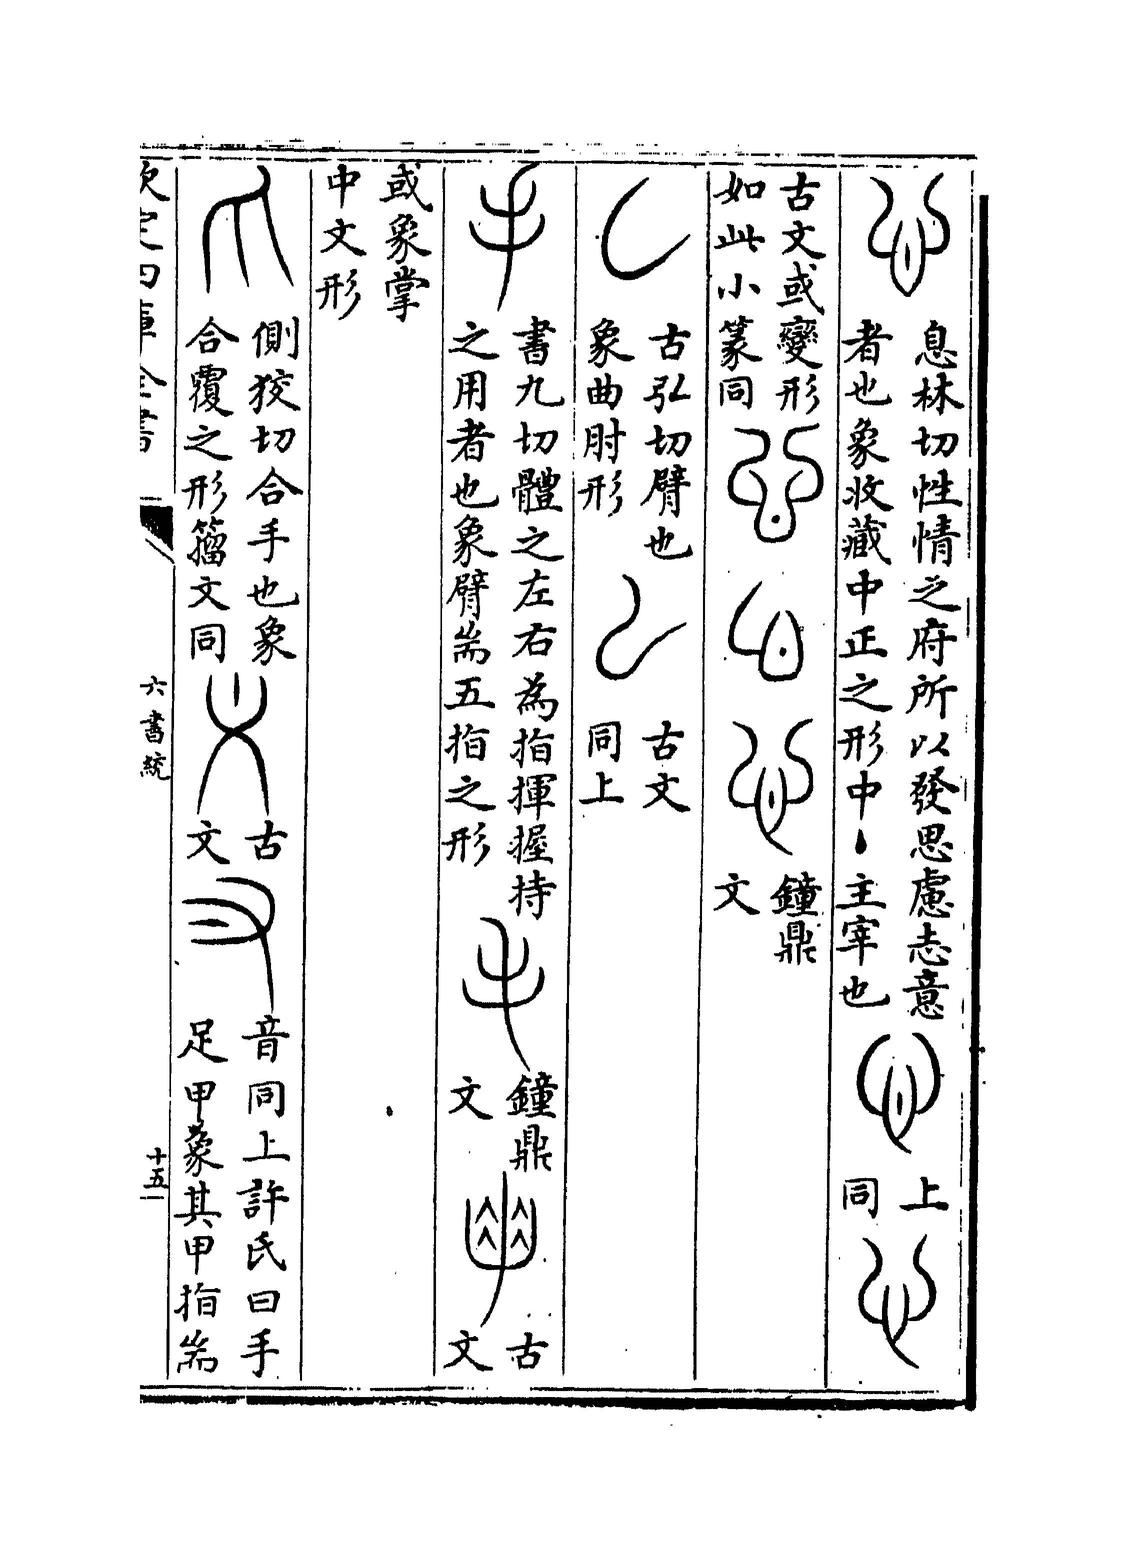 息林切性情之府所以發思慮志意
者也象收藏中正之形中丶主宰也
上
同
古文或變形
如此小篆同
鐘鼎
文
古弘切臂也
象曲肘形
古文
同上
書九切體之左右為指揮握持
之用者也象臂耑五指之形
鐘鼎
文
古
文
或象掌
中文形
側狡切合手也象
合覆之形籀文同
古
文
音同上許氏曰手
足甲象其甲指耑
欽定四庫全書
六書統
十五